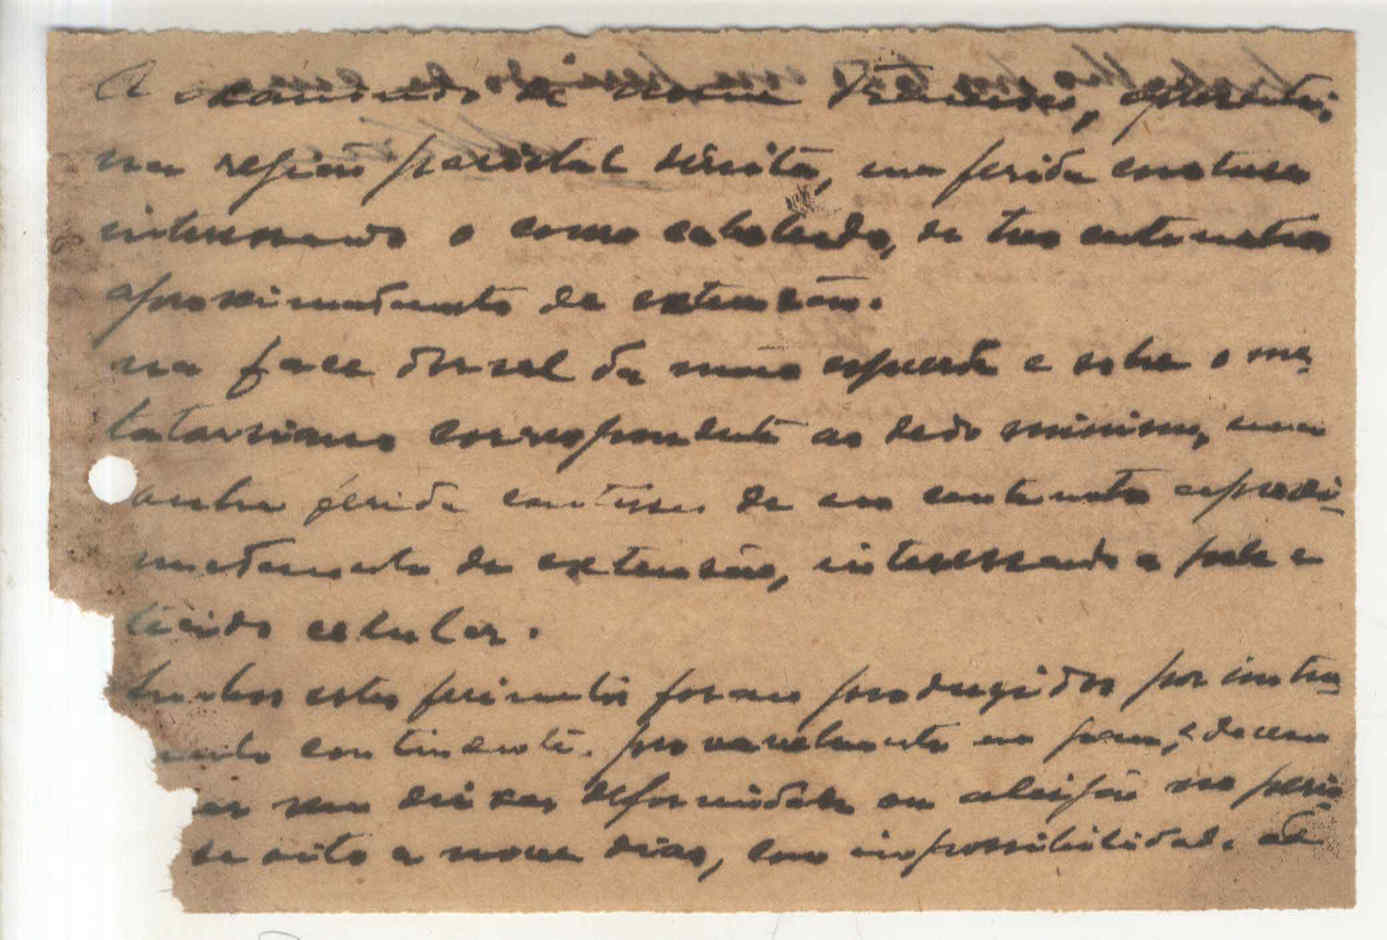 A examinado de nome Francisco, apresenta;
na região parietal direita, uma ferida contusa
interessando o couro cabeludo, de tres centimetros
aproximadamente de extensão.
na face dorsal da mão esquerda e sobre o me-
tatarsiano correspondente ao dedo minimo, uma
outra ferida contusa de um centimetro aproxi-
madamente de extensão, interessando a pele e
tecido celular.
Ambos estes ferimentos foram produzidos por instru-
mento contundente. provavelmente um pau, e devem
ar sem deixar deformidade ou aleijão no perio-
de oito a nove dias, com impossibilidade de